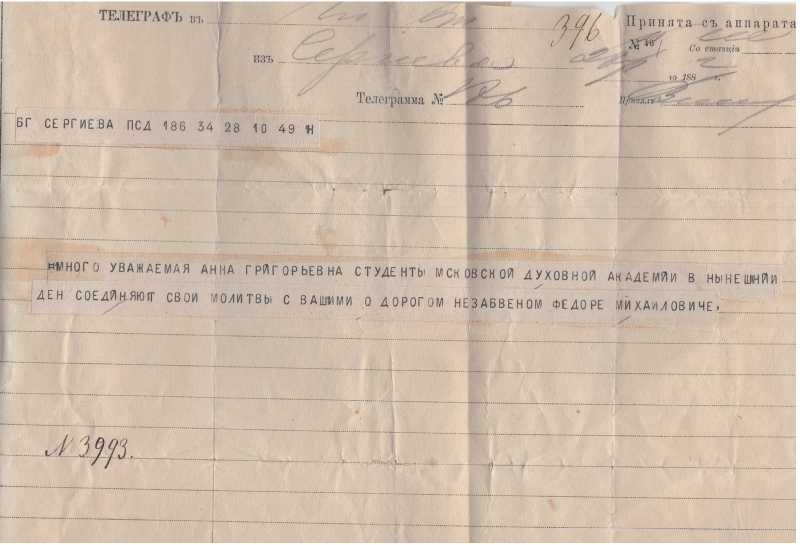 ТЕЛЕГРАФЪ въ
396
Принята съ аппарата
№ Со станціи
изъ
188 г.
Телеграмма № 186
Принялъ
БГ СЕРГИЕВА ПСД 186 34 28 10 49 Н
МНОГО УВАЖАЕМАЯ АННА ГРИГОРЬЕВНА СТУДЕНТЫ МСКОВСКОЙ ДУХОВНОЙ АКАДЕМИИ В НЫНЕШНИЙ
ДЕН СОЕДИНЯЮТ СВОИ МОЛИТВЫ С ВАШИМИ О ДОРОГОМ НЕЗАБВЕНОМ ФЕДОРЕ МИХАИЛОВИЧЕ,
N 3993.